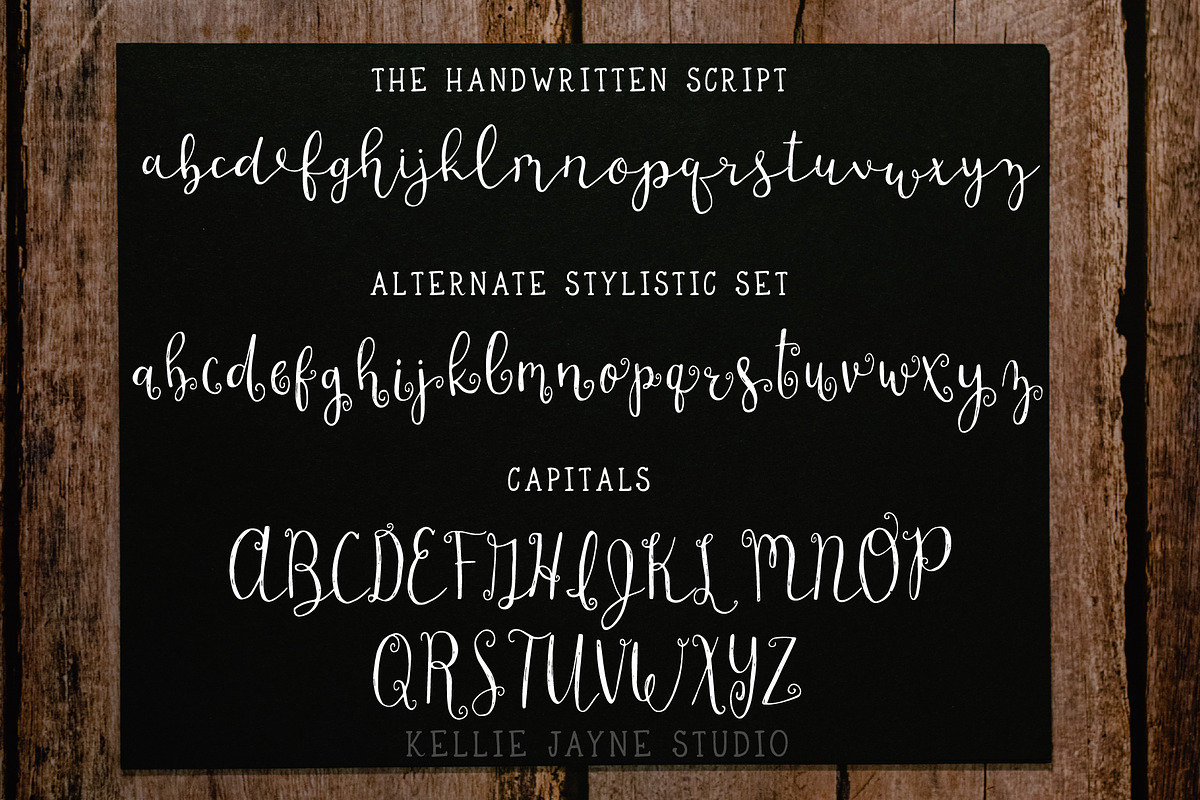 THE HANDWRITTEN SCRIPT
abcdefghijklmnopqrstuvwxyz
ALTERNATE STYLISTIC SET
abcdefghijklmnopqrstuvwxyz
CAPITALS
ABCDEFGHIJKLMNOP
QRSTUVWXYZ
KELLIE JAYNE STUDIO